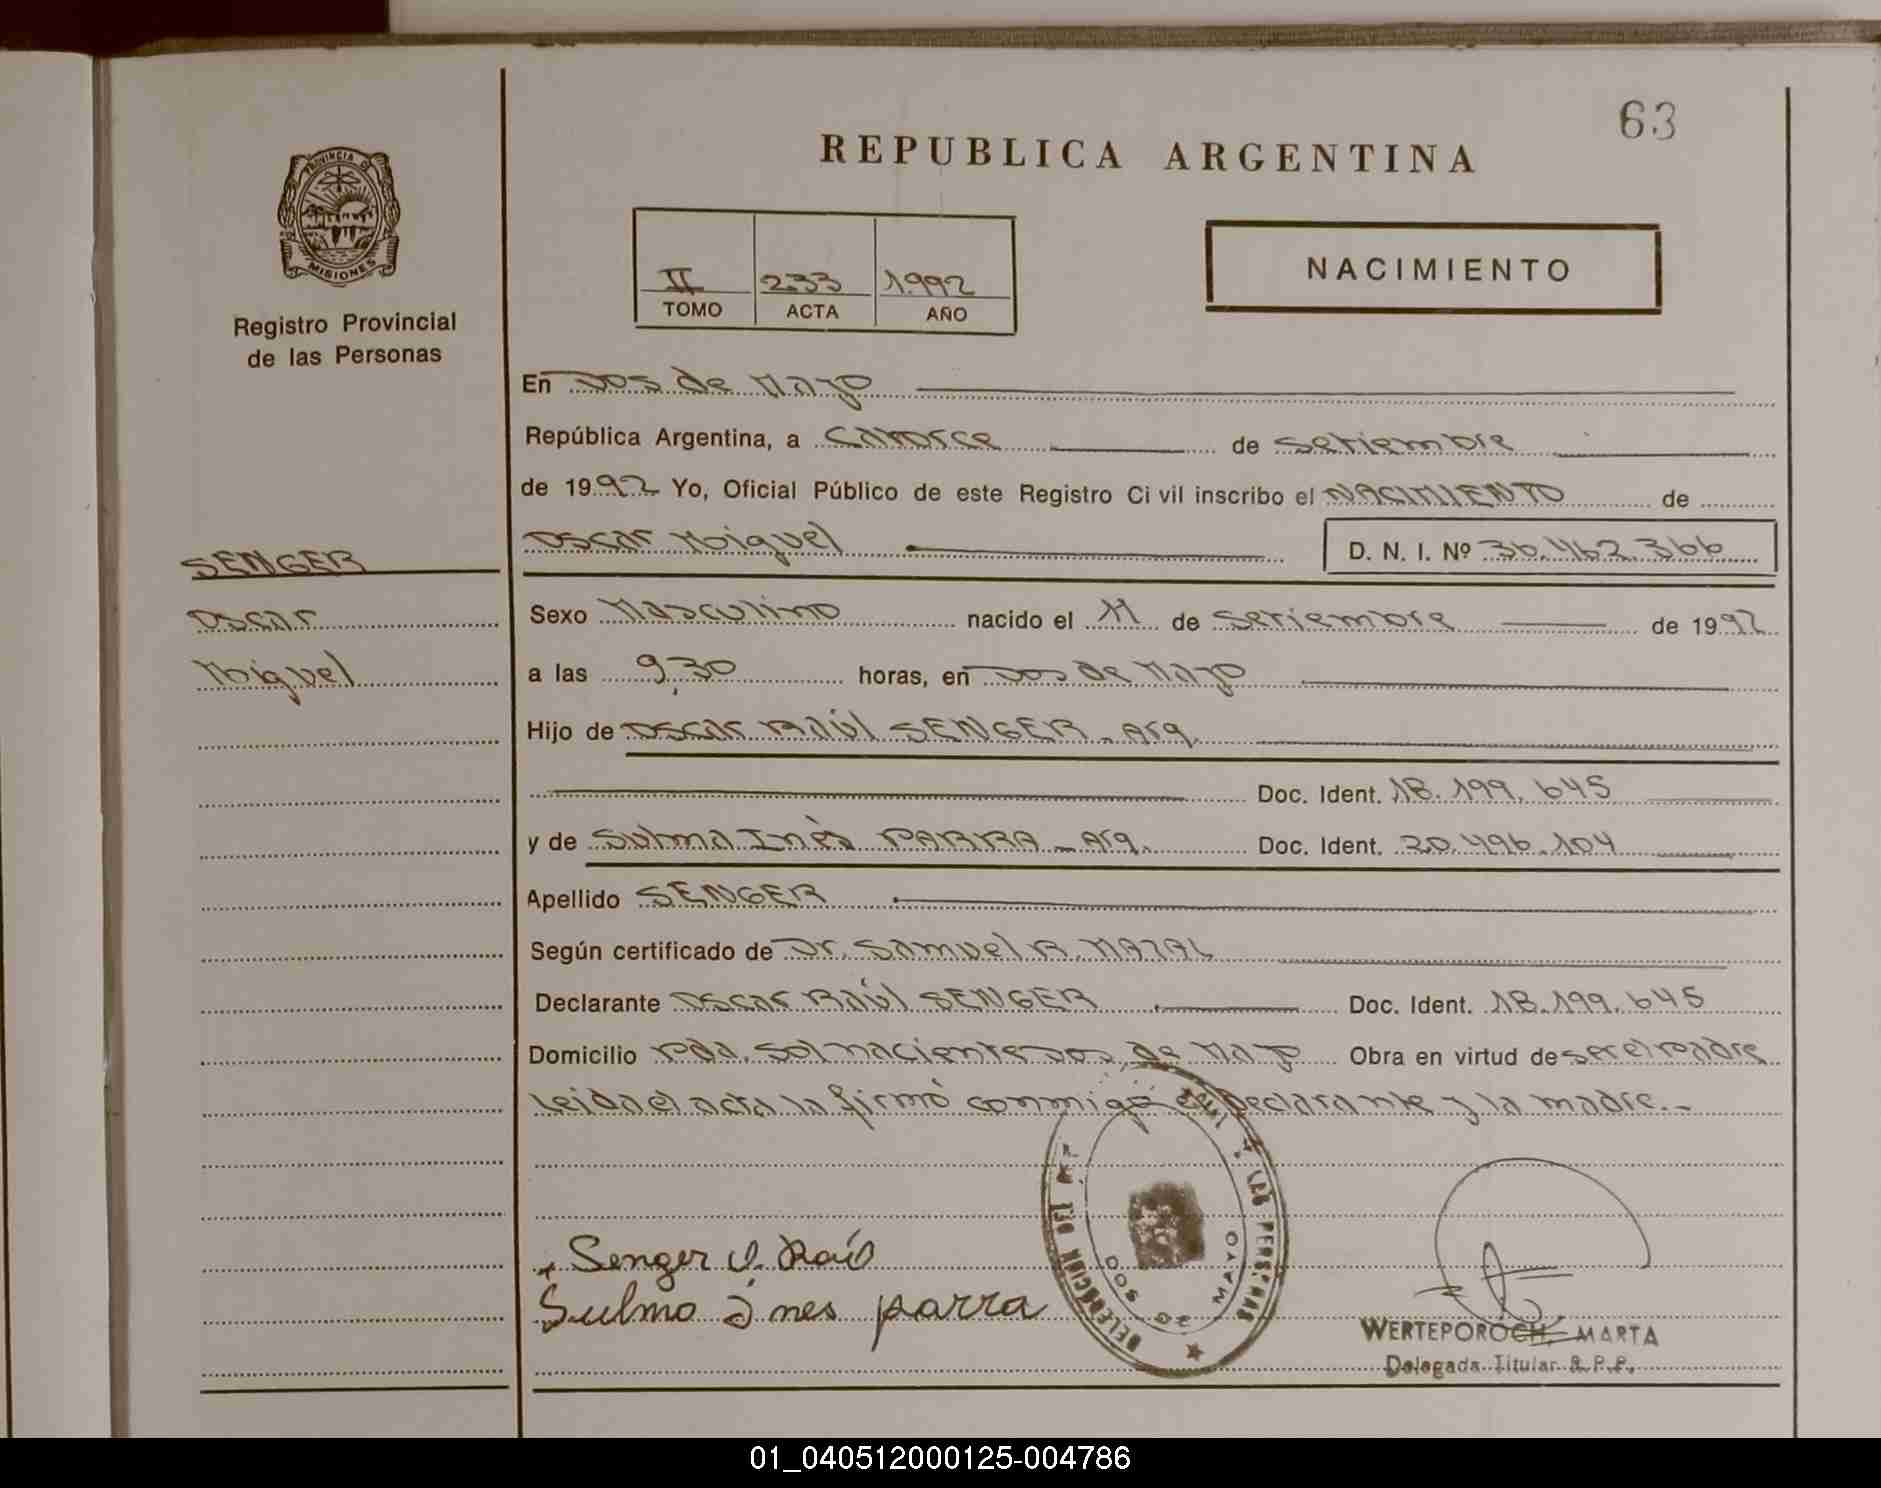 63
REPUBLICA ARGENTINA
PROVINCIA DE
MISIONES
Registro Provincial
de las Personas
II 233 1.992
TOMO ACTA AÑO
NACIMIENTO
En Dos de Mayo
República Argentina, a catorce de setiembre
de 1992 Yo, Oficial Público de este Registro Ci vil inscribo el NACIMIENTO de
Oscar Miguel D. N. I. Nº 36.462.366
SENGER
Oscar
Miguel
Sexo Masculino nacido el 11 de Setiembre de 1992
a las 9,30 horas, en Dos de Mayo
Hijo de Oscar Raúl SENGER - Arg.
Doc. Ident. 18.199.645
y de Sulma Inés PARRA - Arg. Doc. Ident. 20.496.104
Apellido SENGER
Según certificado de Dr. Samuel R. MAZAL
Declarante Oscar Raúl SENGER Doc. Ident. 18.199.645
Domicilio Pda. Sol naciente Dos de Mayo Obra en virtud de ser el padre
Leida el acta la firmó conmigo el Declarante y la madre.-
Senger O. Raúl
Sulma Ines parra
DELEGACION DEL Y LAS PERSONAS
DOS DE MAYO
WERTEPOROCH, MARTA
Delegada Titular R.P.P.
01_040512000125-004786